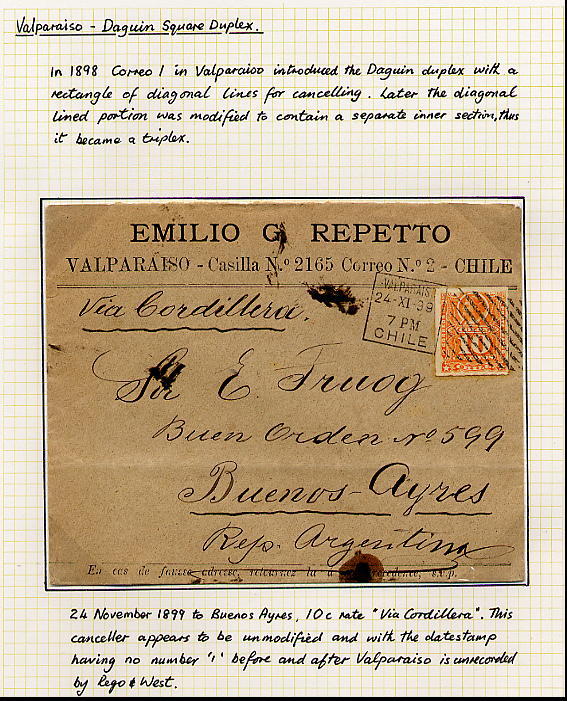 Valparaiso - Daguin Square Duplex.
In 1898 Correo 1 in Valparaiso introduced the Daguin duplex with a
rectangle of diagonal lines for cancelling. Later the diagonal
lined portion was modified to contain a separate inner section, thus
it became a triplex.
EMILIO G. REPETTO
VALPARAISO - Casilla N.º 2165 Correo N.º 2 - CHILE
Via Cordillera.
VALPARAISO
24-XI-99
7 PM
CHILE
10
Sor E. Truog
Buen Orden Nº 599
Buenos-Ayres
Rep. Argentina
En cas de fausse adresse, retournez la a provenance, s.v.p.
24 November 1899 to Buenos Ayres, 10c rate "Via Cordillera". This
canceller appears to be unmodified and with the datestamp
having no number '1' before and after Valparaiso is unrecorded
by Rego & West.